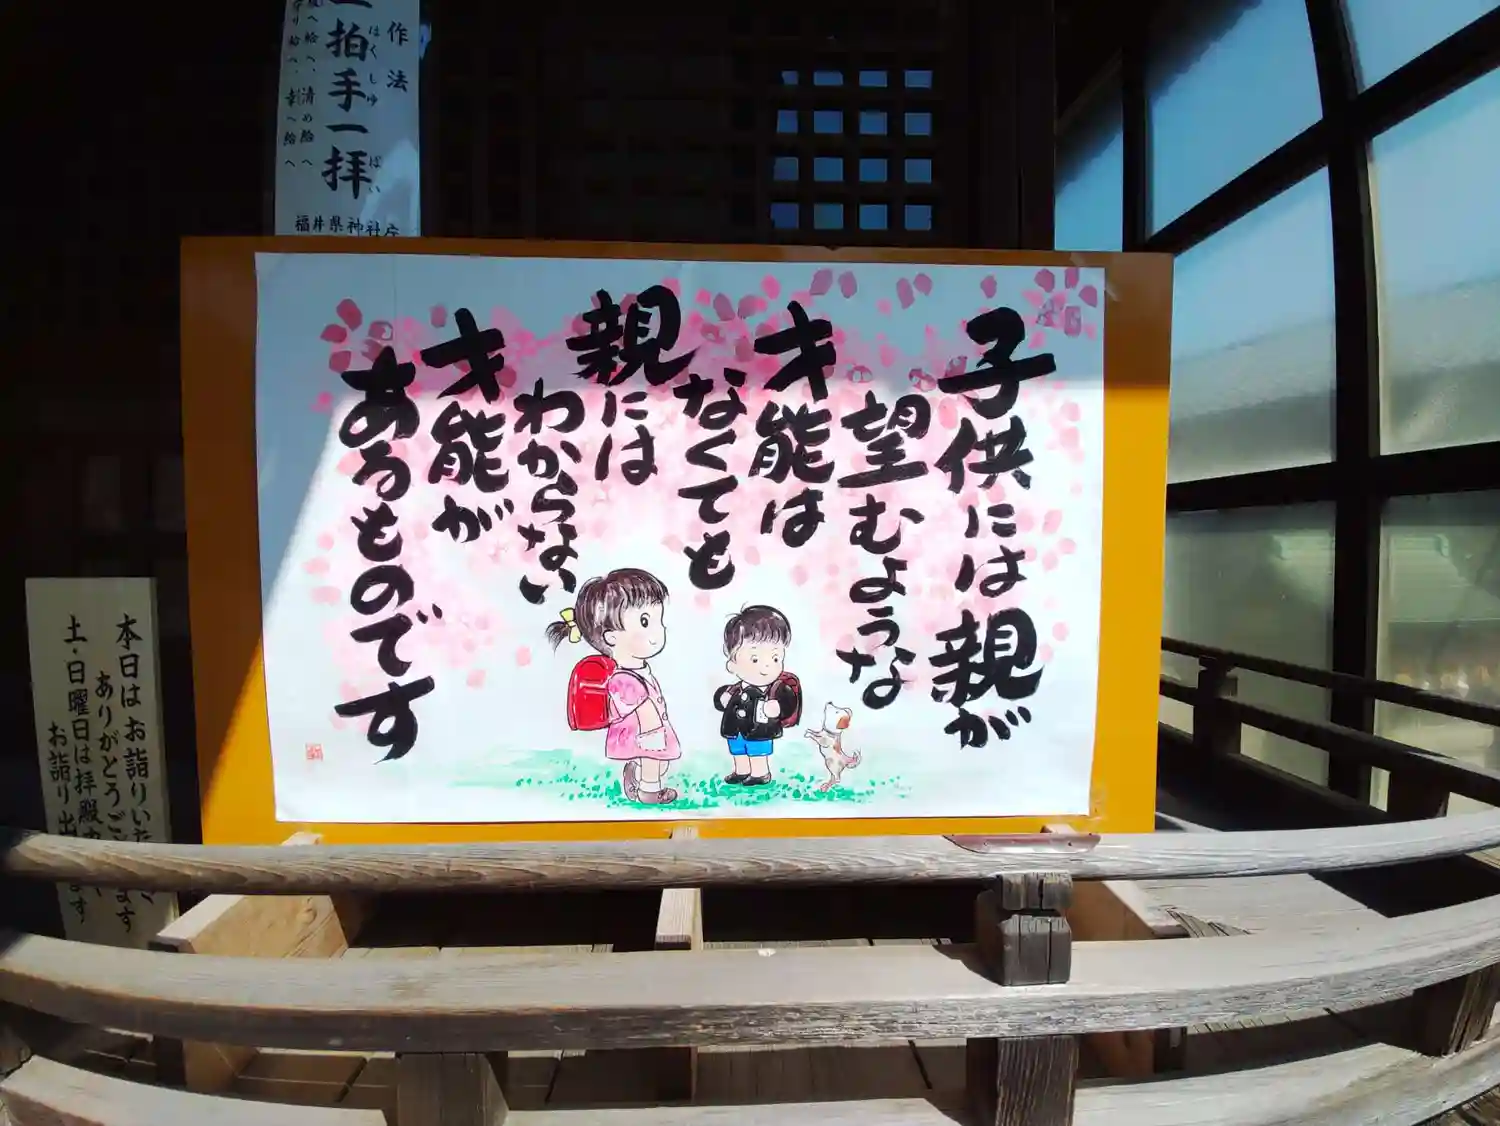 子供には親が
望むような
才能は
なくても
親には
わからない
才能が
あるものです
作法
拍手一拝
はくしゅ
ぱい
清め給へ
幸へ給へ
福井県神社庁
本日はお詣りいた
ありがとうご
ます
土・日曜日は拝殿
お詣り出
ます